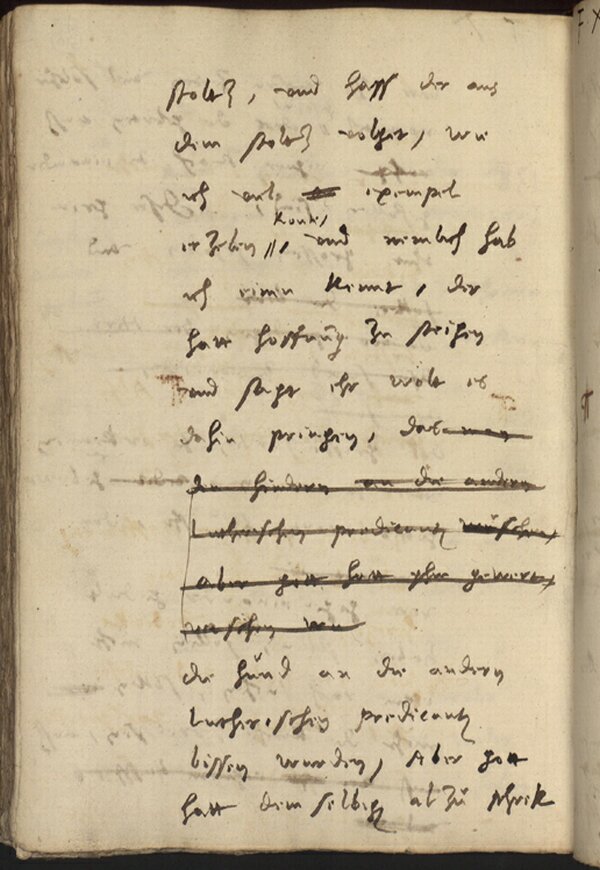 stoltz, und hass der aus
dem stoltz volget, wie
ich vil exempel
konte,
erzelen, und nemlich hab
ich einen kennt, der
hatt hoffnung zu steigen
und sagt ehr wolt es
dahin pringen, das man
den hindern an die andern
Lutherischen predicanten wüschen,
aber gott hatt yhm gewert,
wischen wu
die hünd an die andern
Lutherischen predicanten
bissen wurden, Aber gott
hatt dem selbigen alzu